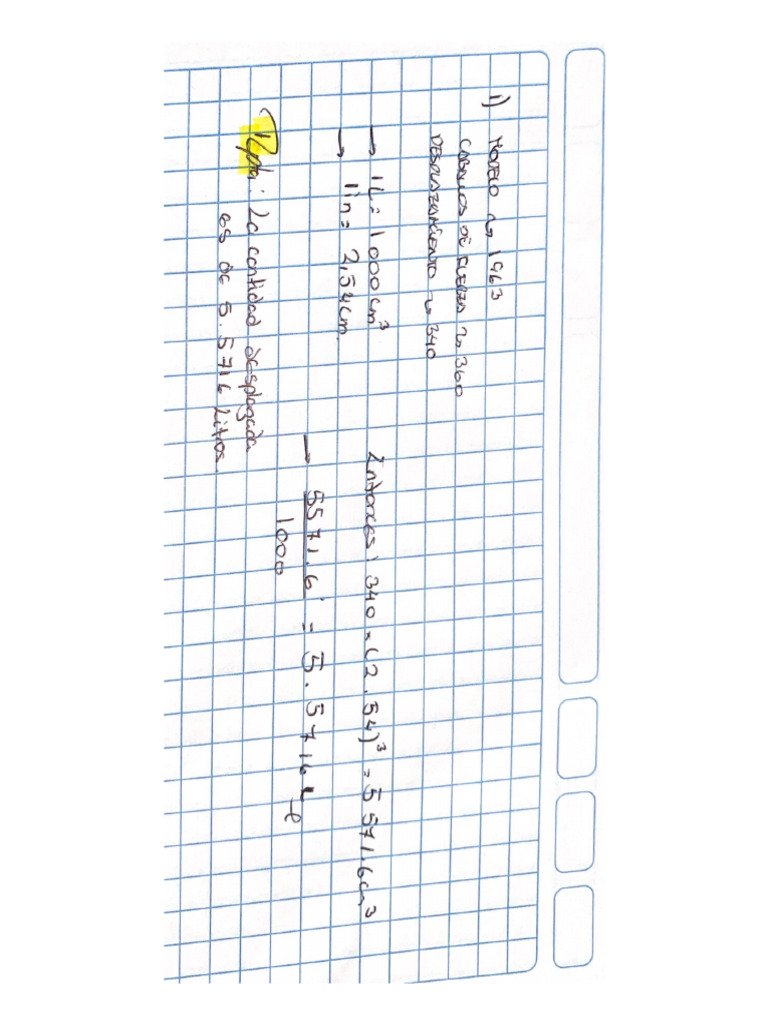 1) MODELO ~> 1963
CABALLOS DE FUERZA ~> 360
DESPLAZAMIENTO ~> 340
→ 1L = 1000 cm³
→ 1in = 2,54cm.
Entonces: 340 × (2.54)³ = 5571.6cm³
→ 5571.6 / 1000 = 5.5716 L
Rpta: La cantidad desplazada
es de 5.5716 Litros.